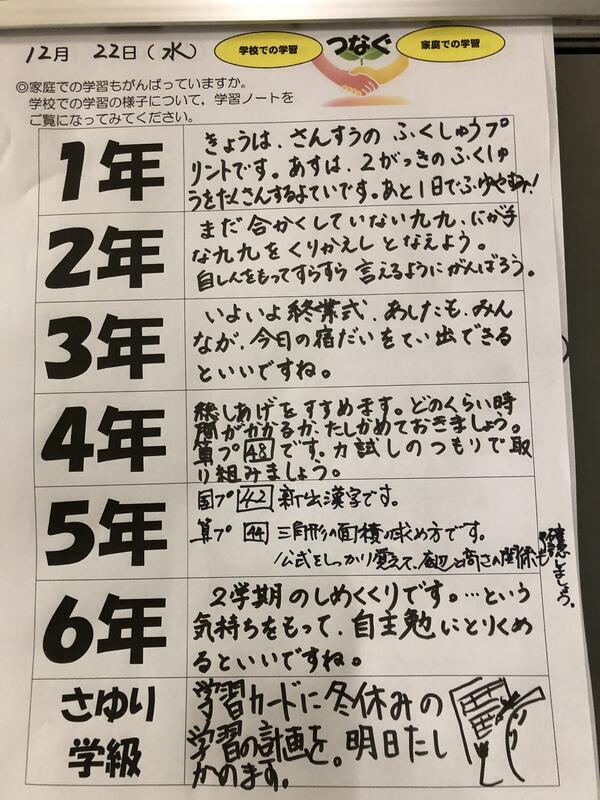 12月 22日(水)
学校での学習
つなぐ
家庭での学習
◎家庭での学習もがんばっていますか。
学校での学習の様子について,学習ノートを
ご覧になってみてください。
1年
きょうは、さんすうの ふくしゅうプ
リントです。あすは、2がっきの ふくしゅ
うをたくさんするよていです。あと1日でふゆやすみ!
2年
まだ 合かくしていない九九、にが手
な九九を くりかえし となえよう。
自しんをもってすらすら 言えるようにがんばろう。
3年
いよいよ終業式、あしたも、みん
なが、今日の宿だいをてい出できる
といいですね。
4年
総しあげをすすめます。どのくらい時
間がかかるか、たしかめておきましょう。
算プ 48 です。力試しのつもりで取
り組みましょう。
5年
国プ 42 新出漢字です。
算プ 44 三角形の面積の求め方です。
公式をしっかり覚えて、底辺と高さの関係も
確認しましょう。
6年
2学期のしめくくりです。…という
気持ちをもって、自主勉にとりくめ
るといいですね。
さゆり
学級
学習カードに冬休みの
学習の計画を。明日たし
かめます。